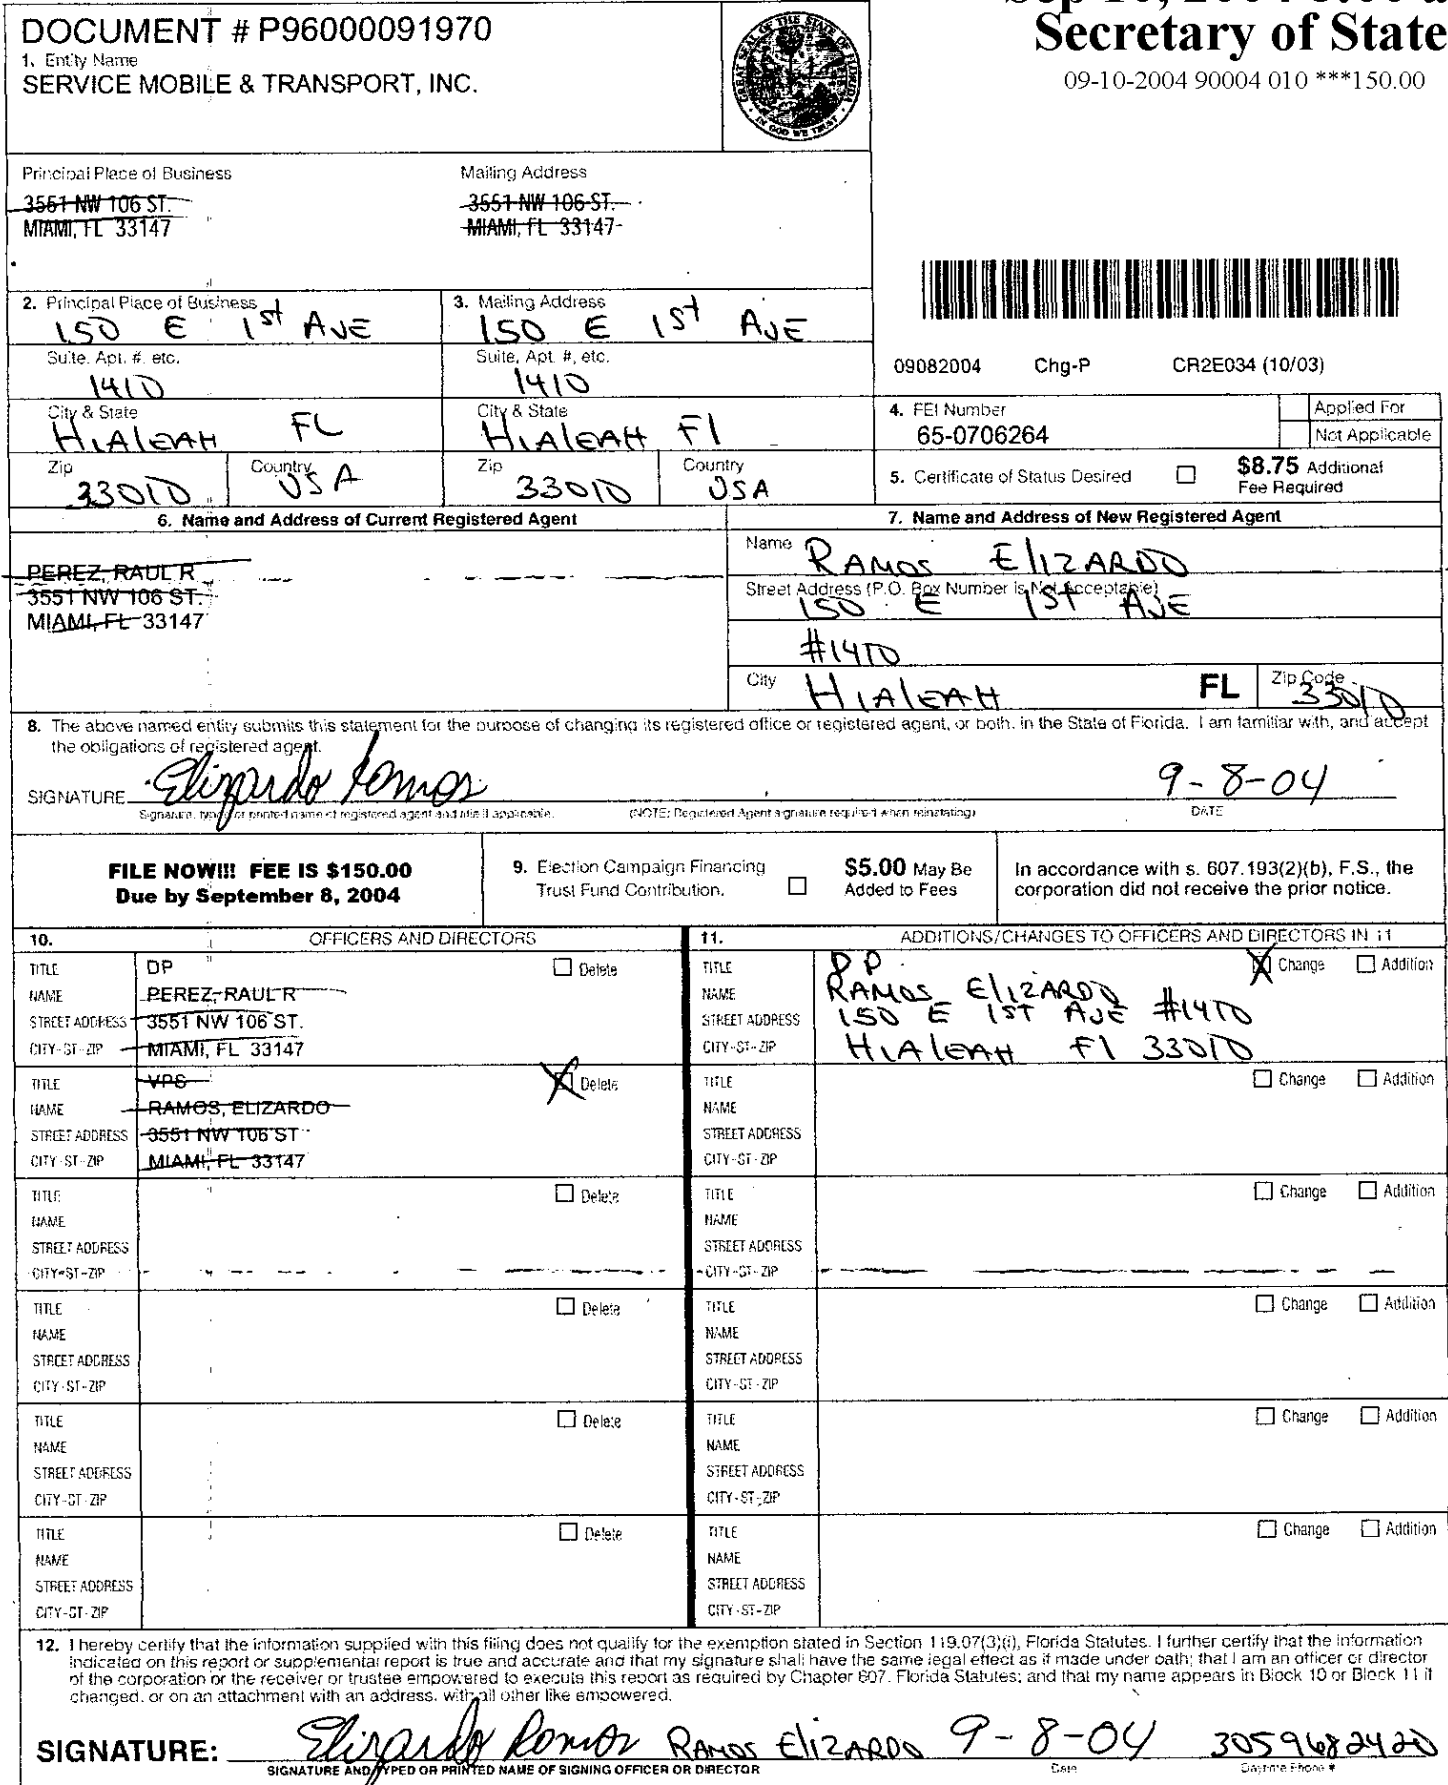 DOCUMENT # P96000091970
1. Entity Name
SERVICE MOBILE & TRANSPORT, INC.
GREAT SEAL OF THE STATE OF FLORIDA
IN GOD WE TRUST
Secretary of State
09-10-2004 90004 010 ***150.00
Principal Place of Business
3551 NW 106 ST.
MIAMI, FL 33147
Mailing Address
3551 NW 106 ST.
MIAMI, FL 33147
2. Principal Place of Business
150 E 1st AVE
Suite, Apt. #, etc.
1410
City & State
HIALEAH FL
Zip
33010
Country
USA
3. Mailing Address
150 E 1st AVE
Suite, Apt. #, etc.
1410
City & State
HIALEAH Fl
Zip
33010
Country
USA
09082004 Chg-P CR2E034 (10/03)
4. FEI Number
65-0706264
Applied For
Not Applicable
5. Certificate of Status Desired
$8.75 Additional
Fee Required
6. Name and Address of Current Registered Agent
PEREZ, RAUL R
3551 NW 106 ST.
MIAMI, FL 33147
7. Name and Address of New Registered Agent
Name RAMOS ElIZARDO
Street Address (P.O. Box Number is Not Acceptable)
150 E 1ST AVE
#1410
City HIALEAH FL Zip Code 33010
8. The above named entity submits this statement for the purpose of changing its registered office or registered agent, or both, in the State of Florida. I am familiar with, and accept
the obligations of registered agent.
SIGNATURE Elizardo Ramos 9-8-04
Signature, typed or printed name of registered agent and title if applicable. (NOTE: Registered Agent signature required when reinstating) DATE
FILE NOW!!! FEE IS $150.00
Due by September 8, 2004
9. Election Campaign Financing
Trust Fund Contribution.
$5.00 May Be
Added to Fees
In accordance with s. 607.193(2)(b), F.S., the
corporation did not receive the prior notice.
10. OFFICERS AND DIRECTORS
11. ADDITIONS/CHANGES TO OFFICERS AND DIRECTORS IN 11
TITLE DP Delete
NAME PEREZ, RAUL R
STREET ADDRESS 3551 NW 106 ST.
CITY-ST-ZIP MIAMI, FL 33147
TITLE DP Change Addition
NAME RAMOS ElIZARDO
STREET ADDRESS 150 E 1ST AVE #1410
CITY-ST-ZIP HIALEAH Fl 33010
TITLE VPS Delete
NAME RAMOS, ELIZARDO
STREET ADDRESS 3551 NW 106 ST
CITY-ST-ZIP MIAMI, FL 33147
TITLE Change Addition
NAME
STREET ADDRESS
CITY-ST-ZIP
TITLE Delete
NAME
STREET ADDRESS
CITY-ST-ZIP
TITLE Change Addition
NAME
STREET ADDRESS
CITY-ST-ZIP
TITLE Delete
NAME
STREET ADDRESS
CITY-ST-ZIP
TITLE Change Addition
NAME
STREET ADDRESS
CITY-ST-ZIP
TITLE Delete
NAME
STREET ADDRESS
CITY-ST-ZIP
TITLE Change Addition
NAME
STREET ADDRESS
CITY-ST-ZIP
TITLE Delete
NAME
STREET ADDRESS
CITY-ST-ZIP
TITLE Change Addition
NAME
STREET ADDRESS
CITY-ST-ZIP
12. I hereby certify that the information supplied with this filing does not qualify for the exemption stated in Section 119.07(3)(i), Florida Statutes. I further certify that the information
indicated on this report or supplemental report is true and accurate and that my signature shall have the same legal effect as if made under oath; that I am an officer or director
of the corporation or the receiver or trustee empowered to execute this report as required by Chapter 607, Florida Statutes; and that my name appears in Block 10 or Block 11 if
changed, or on an attachment with an address, with all other like empowered.
SIGNATURE: Elizardo Ramos RAMOS ElIZARDO 9-8-04 3059682420
SIGNATURE AND TYPED OR PRINTED NAME OF SIGNING OFFICER OR DIRECTOR Date Daytime Phone #